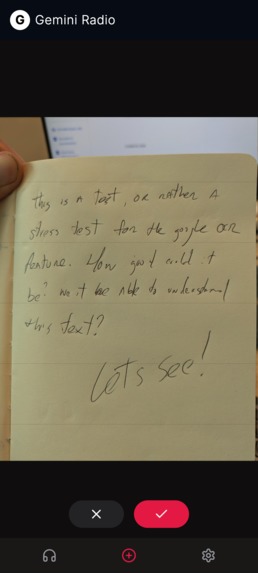 Gemini Radio
This is a test, or rather a
stress test for the google OCR
feature. How good could it
be? will it be able to understand
this text?
Lets see!